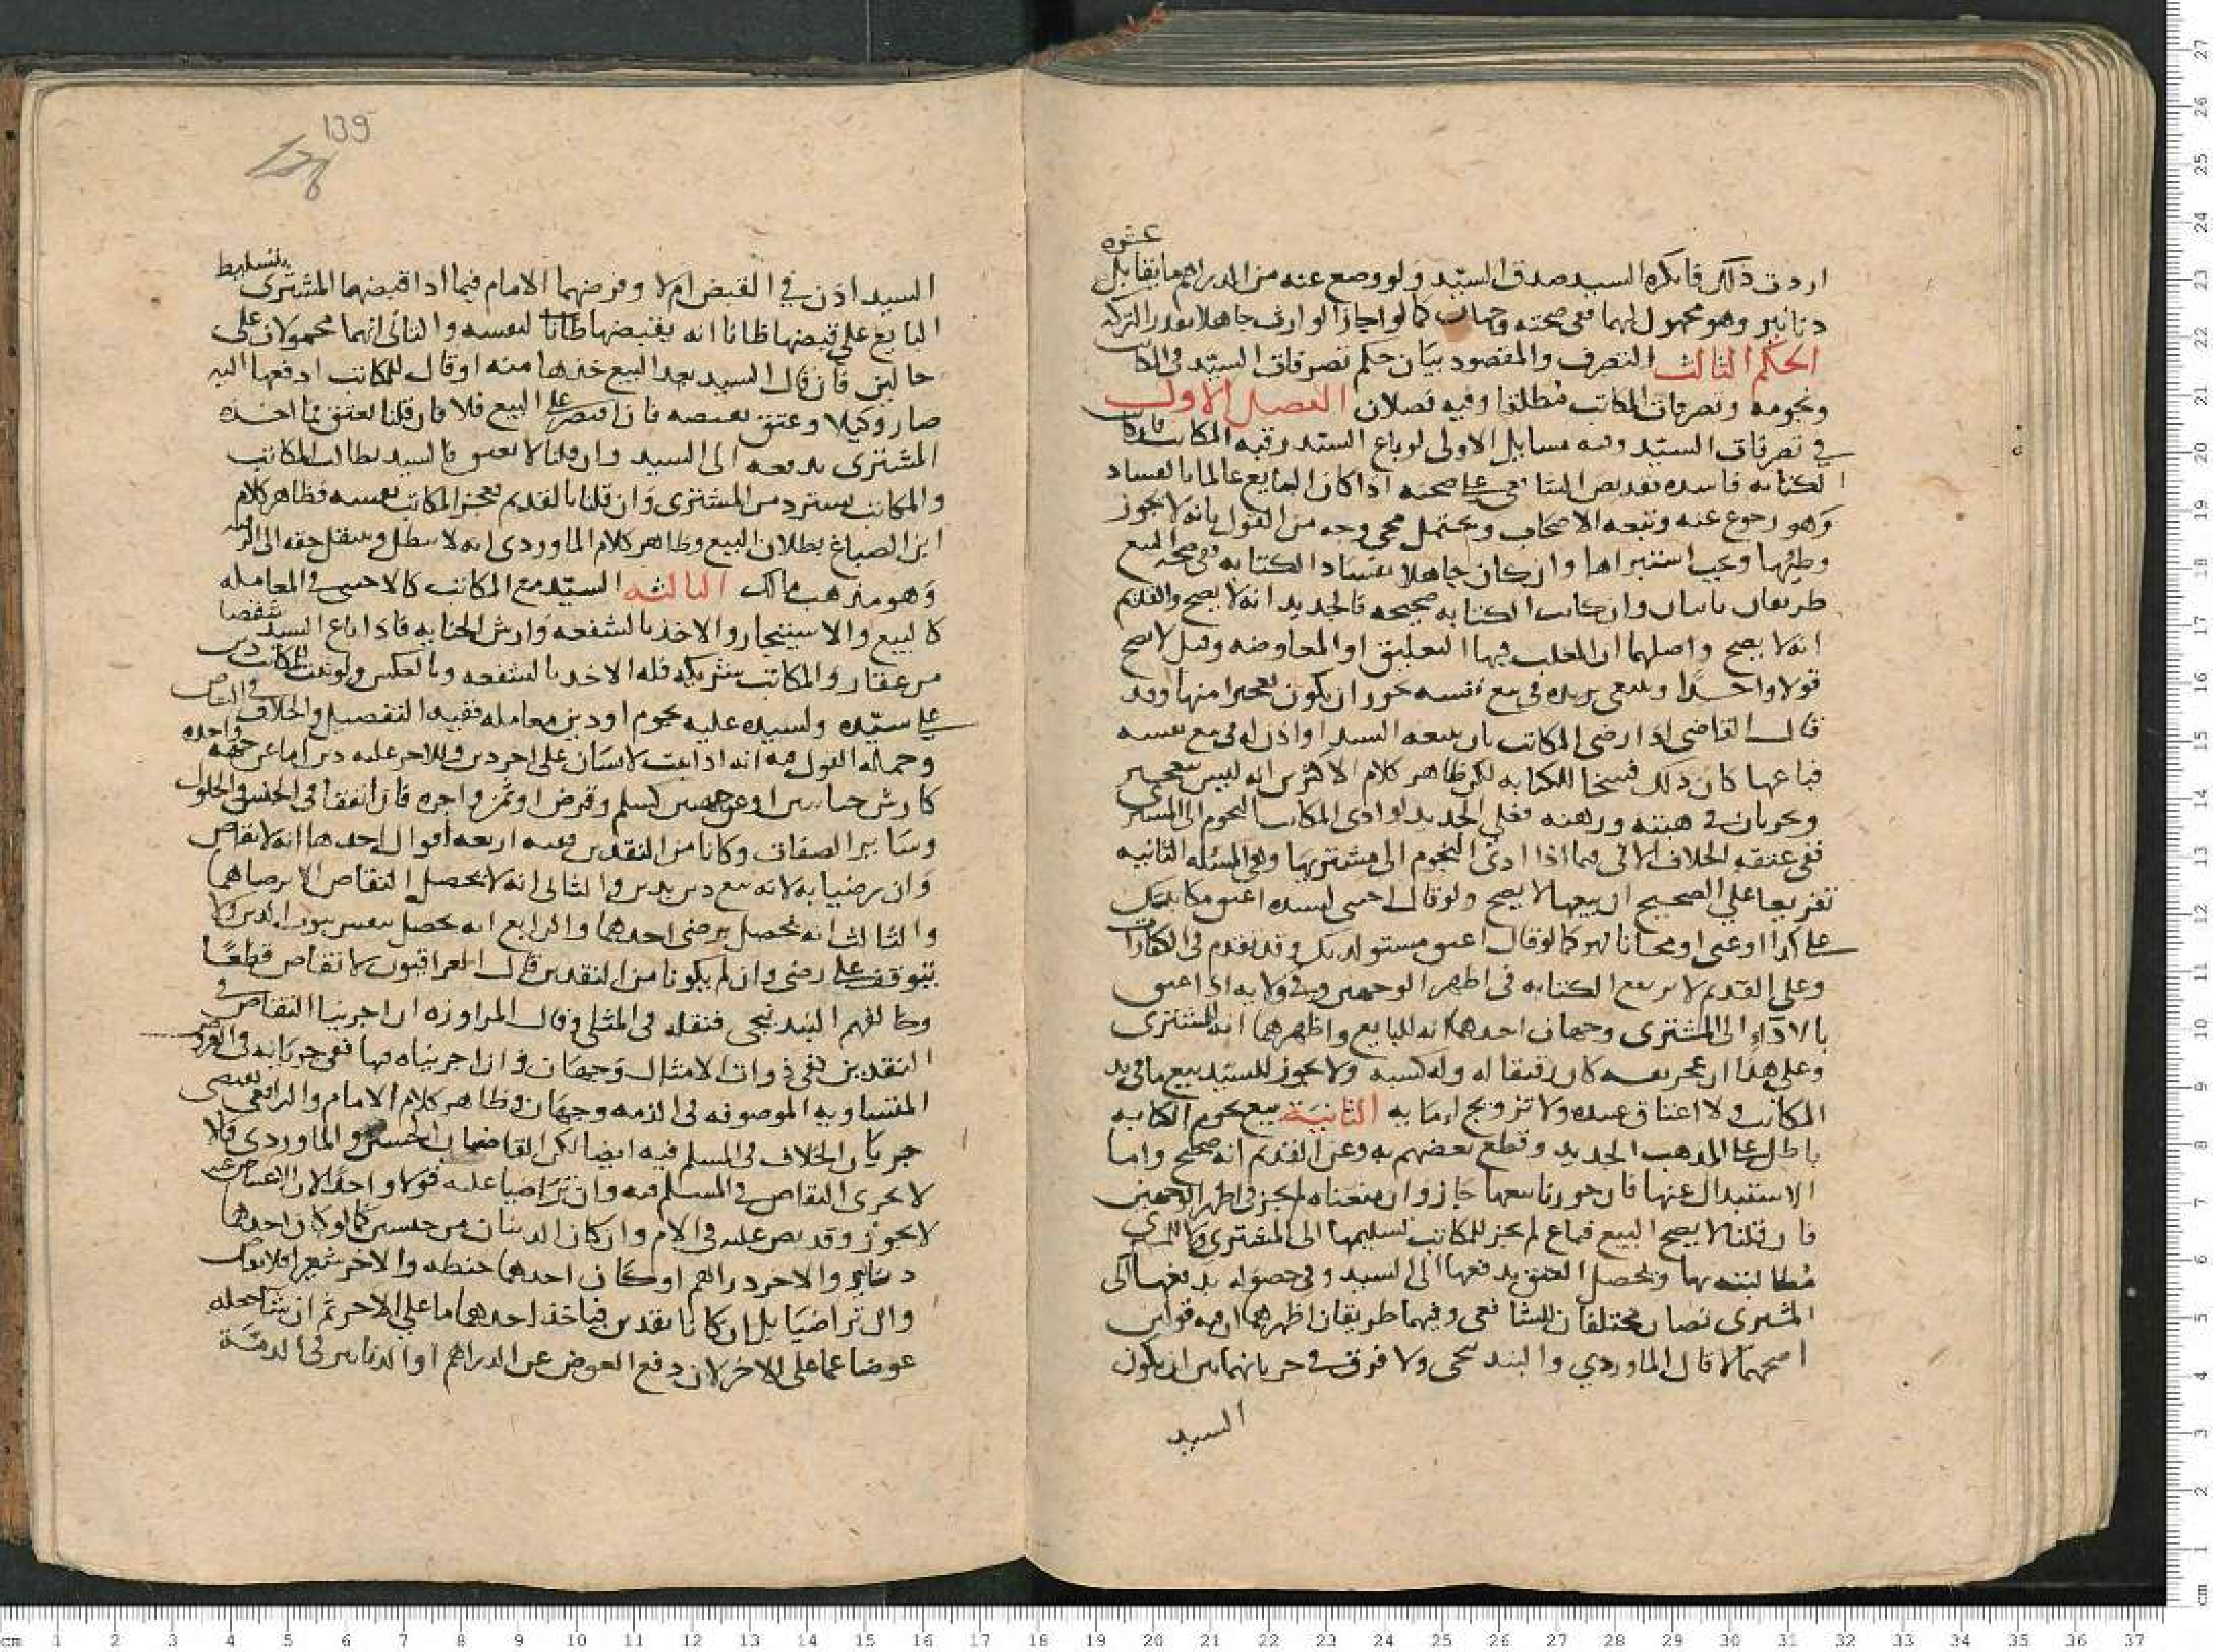 اردت ذلك فانكره السيد صدق السيد ولو وضع عنه من الدراهم ما يقابل عشرة
دنانير وهو مجهول لهما ففي صحته وجهان كما لو اجاز الوارث جاهلا بقدر التركه
الحكم الثالث التصرف والمقصود بيان حكم تصرفات السيد في المكاتب
ونجومه وتصرفات المكاتب مطلقا وفيه فصلان الفصل الاول
في تصرفات السيد وفيه مسايل الاولى لو باع السيد رقبه المكاتب فان كانت
الكتابه فاسده فقد نص الشافعي على صحته اذا كان البايع عالما بالفساد
وهو رجوع عنه وتبعه الاصحاب ويحتمل مجي وجه من القول بانه لا يجوز
وطيها ويجب استبراها وان كان جاهلا بفساد الكتابه ففي صحه البيع
طريقان بانيان وان كانت الكتابه صحيحه فالجديد انه لا يصح والقديم
انه لا يصح واصلهما ان المغلب فيها التعليق او المعاوضه وقيل لا يصح
قولا واحدا وينبغي تردده في بيع نفسه يجوز ان يكون تعجيزا منها وقد
قال القاضي اذا رضي المكاتب بان يبيعه السيد او اذن له في بيع نفسه
فباعها كان ذلك فسخا للكتابه لكن ظاهر كلام الاكثرين انه ليس بتعجيز
ويجريان في هبته ورهنه فعلى الجديد لو ادى المكاتب النجوم الى المشتري
ففي عتقه الخلاف الاتي فيما اذا ادى النجوم الى مشتريها وفي المسئله الثانيه
تفريعا على الصحيح ان بيعها لا يصح ولو قال اجنبي لسيده اعتق مكاتبك
على كذا او عني او مجانا فهو كما لو قال اعتق مستولدتك وقد تقدم في الكفارات
وعلى القديم لا ترتفع الكتابه في اظهر الوجهين وفي ولايه اذا اعتق
بالاداء الى المشتري وجهان احدهما انه للبايع واظهرهما انه للمشتري
وعلى هذا ان عجز نفسه كان رقيقا له وله كسبه ولا يجوز للسيد بيع ما في يد
المكاتب ولا اعتاق عبيده ولا تزويج امايه الثانية بيع نجوم الكتابه
باطل على المذهب الجديد وقطع بعضهم به وعن القديم انه صحيح واما
الاستبدال عنها فان جوزنا بيعها جاز وان منعناه لم يجز في اظهر الوجهين
فان قلنا لا يصح البيع فباع لم يجز للمكاتب تسليمها الى المشتري ولا للمشتري
مطالبته بها ويحصل العتق بدفعها الى السيد وفي حصوله بدفعها الى
المشتري نصان مختلفان للشافعي وفيهما طريقان اظهرهما ان فيه قولين
اصحهما لا قال الماوردي والبندنيجي ولا فرق في جريانهما بين ان يكون
السيد
139
السيد اذن في القبض ام لا وفرضهما الامام فيما اذا اقبضهما المشتري بتسليط
البايع على قبضها ظانا انه يقبضها ظانا لنفسه والثاني انهما محمولان على
حالين فان قال السيد بعد البيع خذها منه او قال للمكاتب ادفعها اليه
صار وكيلا وعتق بقبضه فان اقتصر على البيع فلا فان قلنا يعتق فما اخذه
المشتري يدفعه الى السيد وان قلنا لا يعتق فالسيد يطالب المكاتب
والمكاتب يسترد من المشتري وان قلنا بالقديم فعجز المكاتب نفسه فظاهر كلام
ابن الصباغ بطلان البيع وظاهر كلام الماوردي انه لا يبطل وينتقل حقه الى الرقبه
وهو مذهب مالك الثالثه السيد مع المكاتب كالاجنبي في المعامله
كالبيع والاستيجار والاخذ بالشفعه وارش الجنايه فاذا باع السيد شقصا
من عقار والمكاتب شريكه فله الاخذ بالشفعه وبالعكس ولو ثبت للمكاتب دين
على سيده ولسيده عليه نجوم او دين معامله ففيه التفصيل والخلاف في التقاص
وجماله القول فيه انه اذا ثبت لانسان على اخر دين وللاخر عليه دين اما عن جهه واحده
كارش جنايتين او عن جهتين كسلم وقرض او ثمن واجره فان اتفقا في الجنس والحلول
وساير الصفات وكانا من النقدين ففيه اربعه اقوال احدها انه لا تقاص
وان رضيا به لانه بيع دين بدين والثاني انه لا يحصل التقاص الا برضاهما
والثالث انه يحصل برضى احدهما والرابع انه يحصل بنفس ثبوت الدين ولا
يتوقف على رضى وان لم يكونا من النقدين قال العراقيون لا تقاص قطعا
وخالفهم البندنيجي فنقله في المثلي وقال المراوزه ان اجرينا التقاص في
النقدين ففي ذوات الامثال وجهان وان اجريناه فيها ففي جريانه في العروض
المتساويه الموصوفه في الذمه وجهان وظاهر كلام الامام والرافعي يقتضي
جريان الخلاف في المسلم فيه ايضا لكن القاضيان الحسين والماوردي قالا
لا يجري التقاص في المسلم فيه وان تراضيا عليه قولا واحدا لان الاعتياض عنه
لا يجوز وقد نص عليه في الام وان كان الدينان من جنسين كما لو كان احدهما
دنانير والاخر دراهم او كان احدهما حنطه والاخر شعيرا فلا تقاص
وان تراضيا بل ان كانا نقدين فياخذ احدهما ما على الاخر ثم ان شا جعله
عوضا عما على الاخر لان دفع العوض عن الدراهم او الدنانير في الذمة